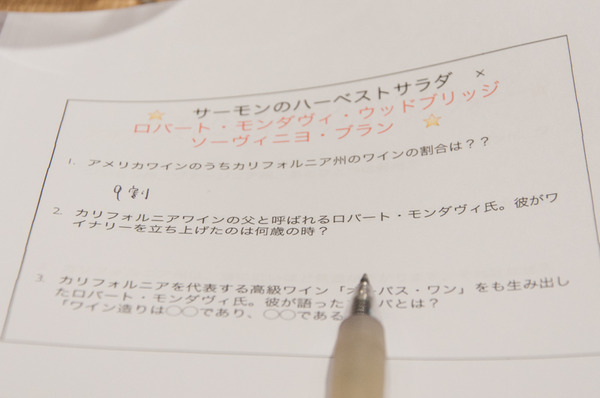 サーモンのハーベストサラダ ×
ロバート・モンダヴィ・ウッドブリッジ
ソーヴィニヨ・ブラン
1. アメリカワインのうちカリフォルニア州のワインの割合は？？
9割
2. カリフォルニアワインの父と呼ばれるロバート・モンダヴィ氏。彼がワ
イナリーを立ち上げたのは何歳の時？
3. カリフォルニアを代表する高級ワイン「オーパス・ワン」をも生み出し
たロバート・モンダヴィ氏。彼が語った パとは？
「ワイン造りは◯◯であり、◯◯である